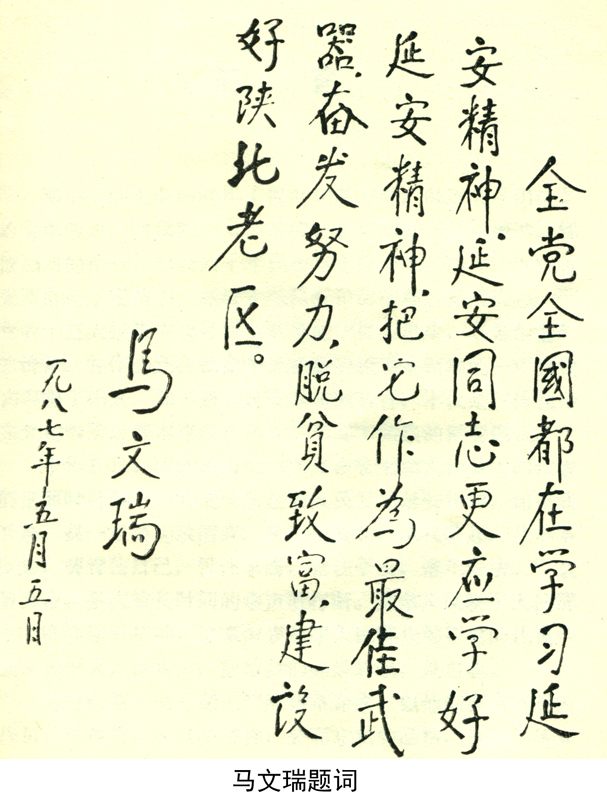 全党全國都在学习延
安精神，延安同志更应学好
延安精神，把它作為最佳武
器，奋发努力，脱貧致富，建设
好陕北老区。
馬文瑞
一九八七年五月五日
马文瑞题词